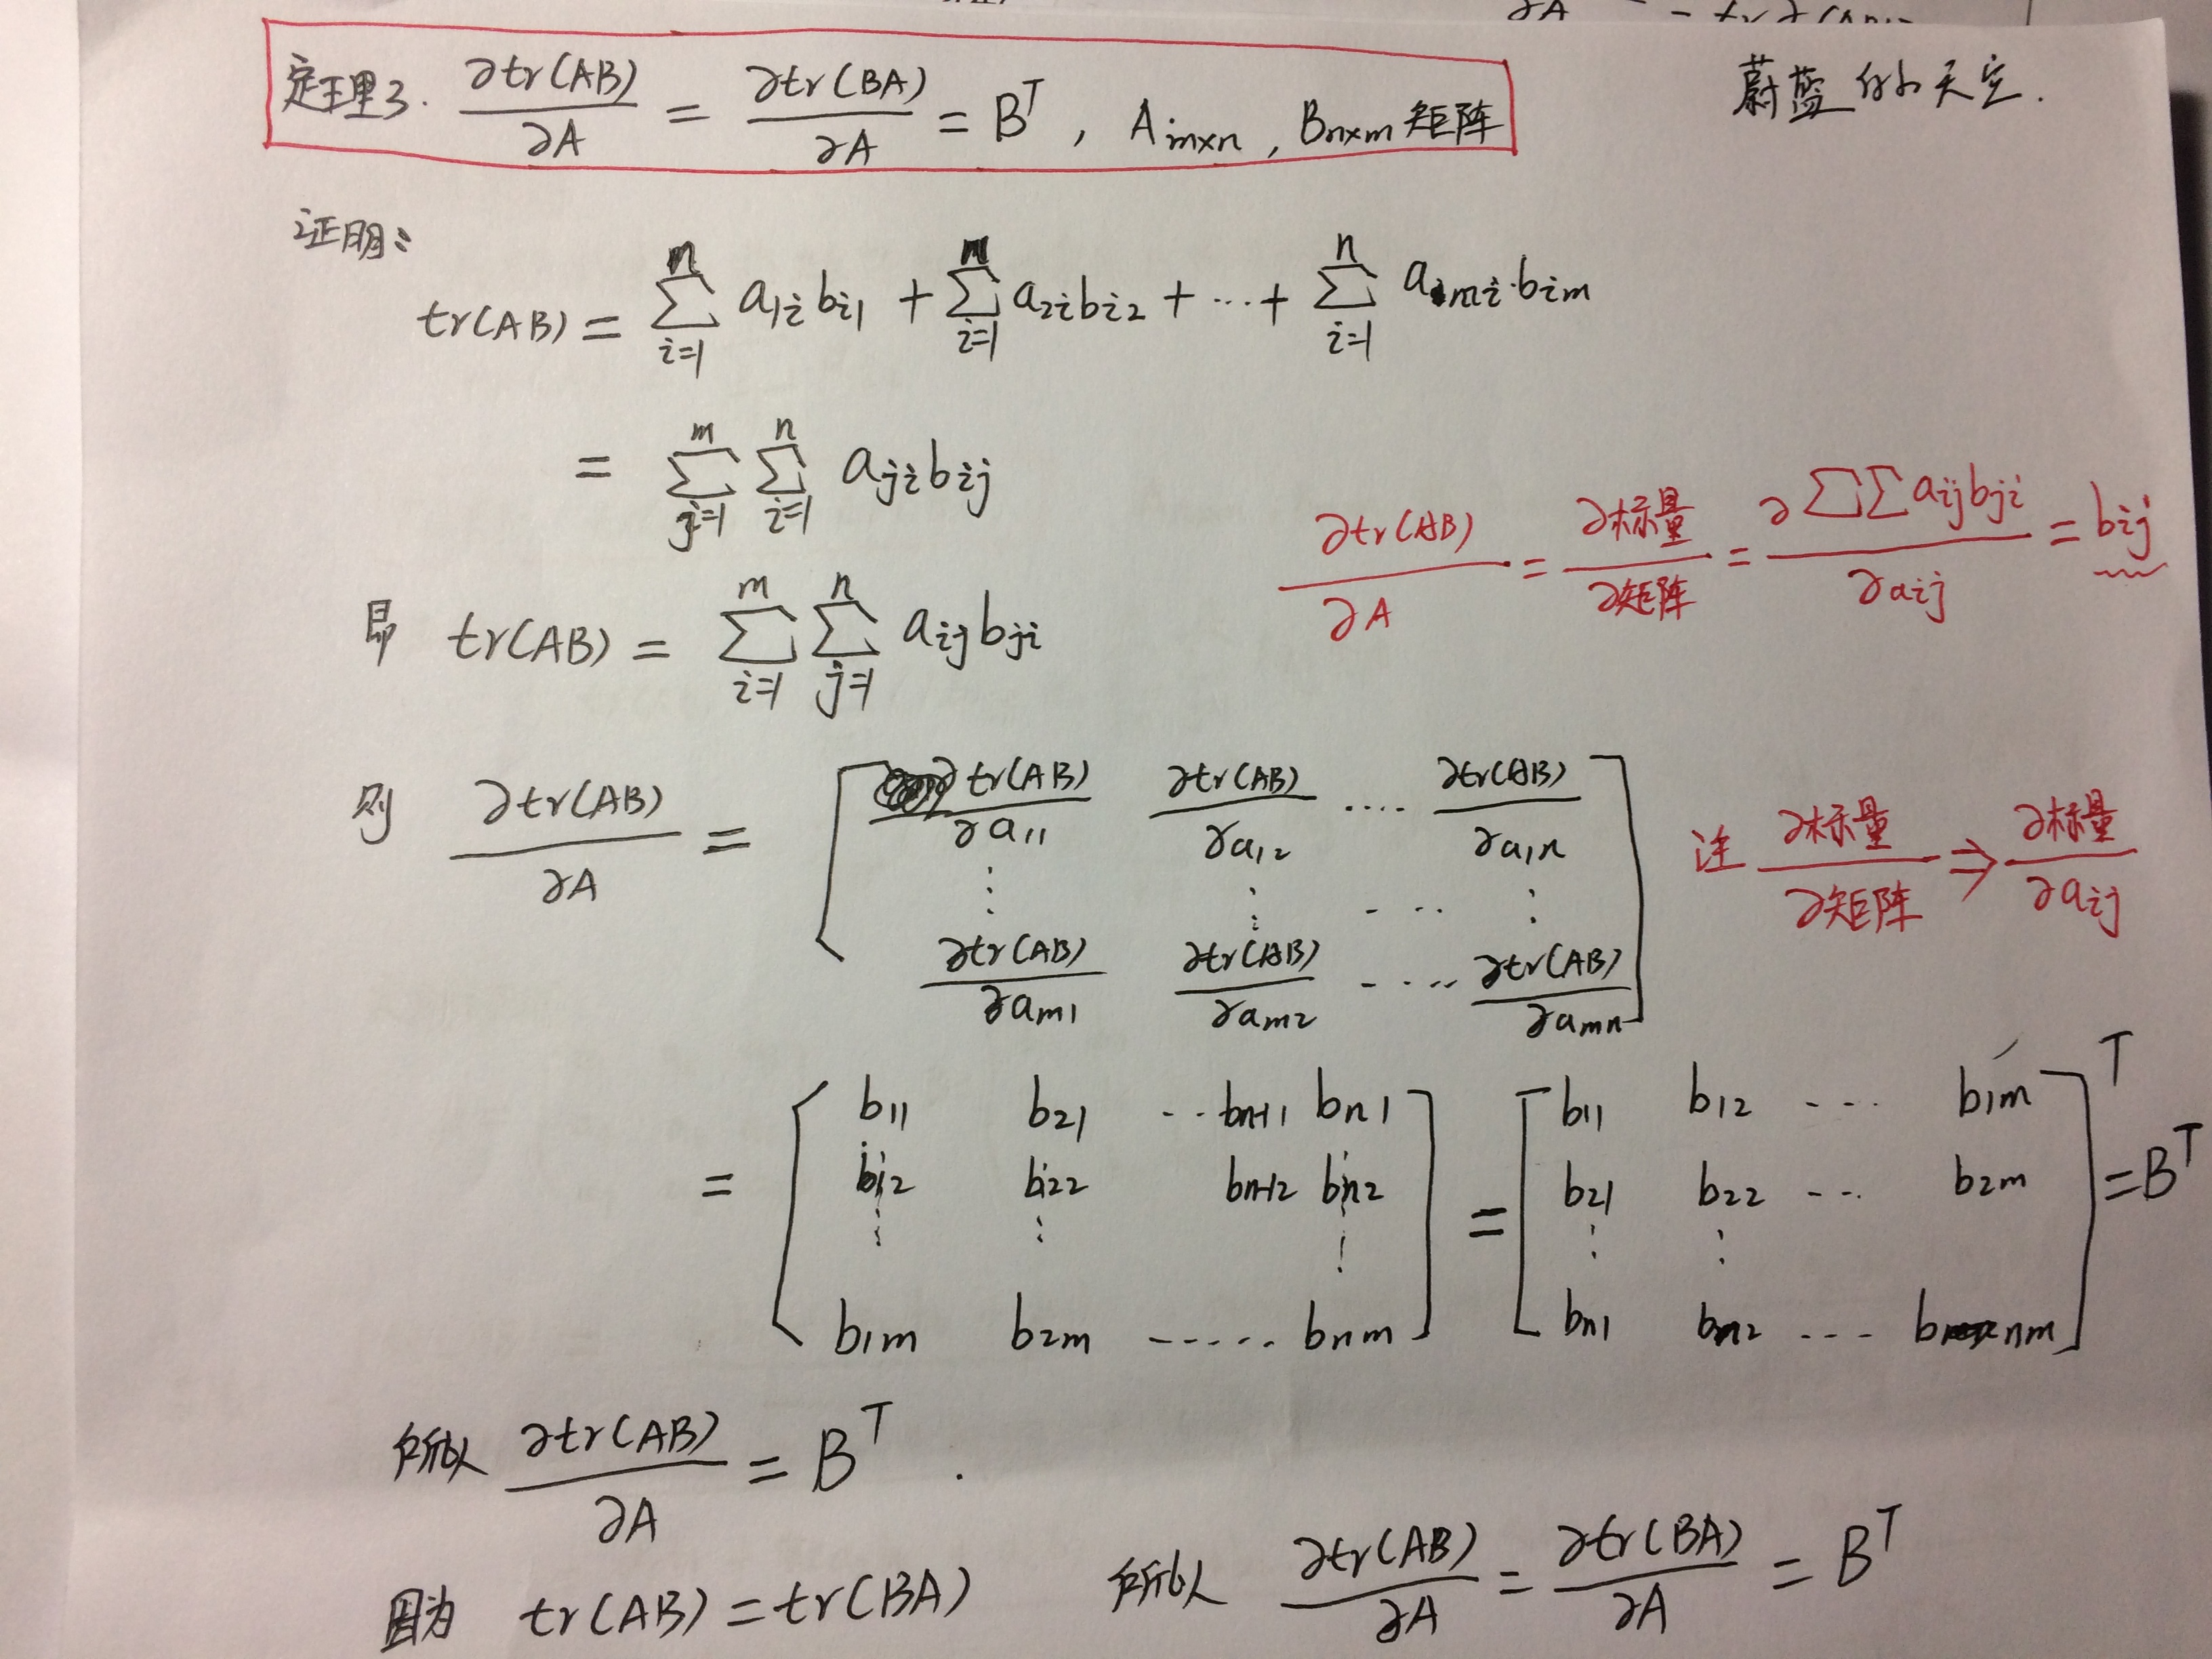 定理3. ∂tr(AB)/∂A = ∂tr(BA)/∂A = B^T , A_{m×n} , B_{n×m} 矩阵
蔚蓝的天空.
证明:
tr(AB) = ∑_{i=1}^{n} a_{1i} b_{i1} + ∑_{i=1}^{n} a_{2i} b_{i2} + ... + ∑_{i=1}^{n} a_{mi}·b_{im}
= ∑_{j=1}^{m} ∑_{i=1}^{n} a_{ji} b_{ij}
∂tr(AB)/∂A = ∂标量/∂矩阵 = ∂∑∑a_{ij}b_{ji}/∂a_{ij} = b_{ij}
即 tr(AB) = ∑_{i=1}^{m} ∑_{j=1}^{n} a_{ij} b_{ji}
则 ∂tr(AB)/∂A = [ ∂tr(AB)/∂a_{11} ∂tr(AB)/∂a_{12} .... ∂tr(AB)/∂a_{1n}
⋮ ⋮ ... ⋮
∂tr(AB)/∂a_{m1} ∂tr(AB)/∂a_{m2} ..... ∂tr(AB)/∂a_{mn} ]
注 ∂标量/∂矩阵 ⇒ ∂标量/∂a_{ij}
= [ b_{11} b_{21} ... b_{n-1 1} b_{n1}
b_{12} b_{22} b_{n-1 2} b_{n2}
⋮ ⋮ ⋮
b_{1m} b_{2m} ...... b_{nm} ]
= [ b_{11} b_{12} ... b_{1m}
b_{21} b_{22} ... b_{2m}
⋮ ⋮
b_{n1} b_{n2} ... b_{nm} ]^T = B^T
所以 ∂tr(AB)/∂A = B^T .
因为 tr(AB) = tr(BA) 所以 ∂tr(AB)/∂A = ∂tr(BA)/∂A = B^T